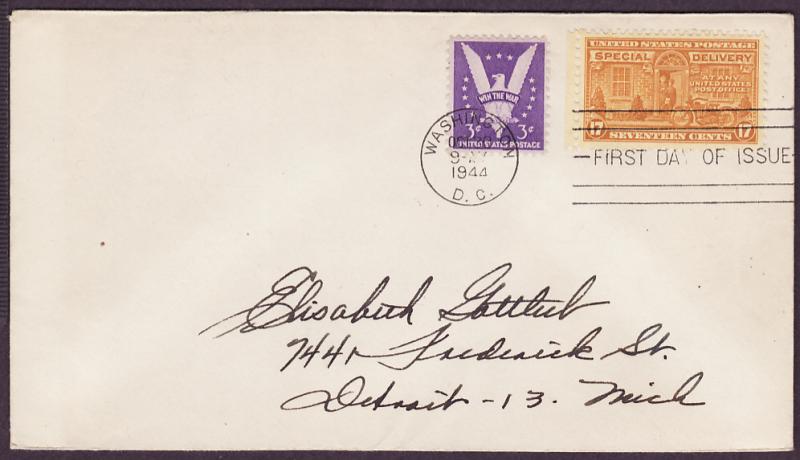 WIN THE WAR
3¢ 3¢
UNITED STATES POSTAGE
UNITED STATES POSTAGE
SPECIAL DELIVERY
AT ANY
UNITED STATES
POST OFFICE
17 17
SEVENTEEN CENTS
WASHINGTON
1944
D. C.
FIRST DAY OF ISSUE
Elisabeth Gottlieb
7441 Frederick St.
Detroit - 13. Mich